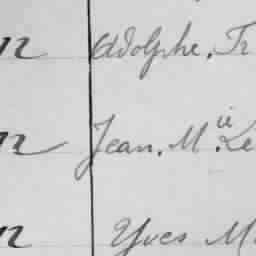 n Adolphe, Fr
n Jean, M.ie Le
n Yves M